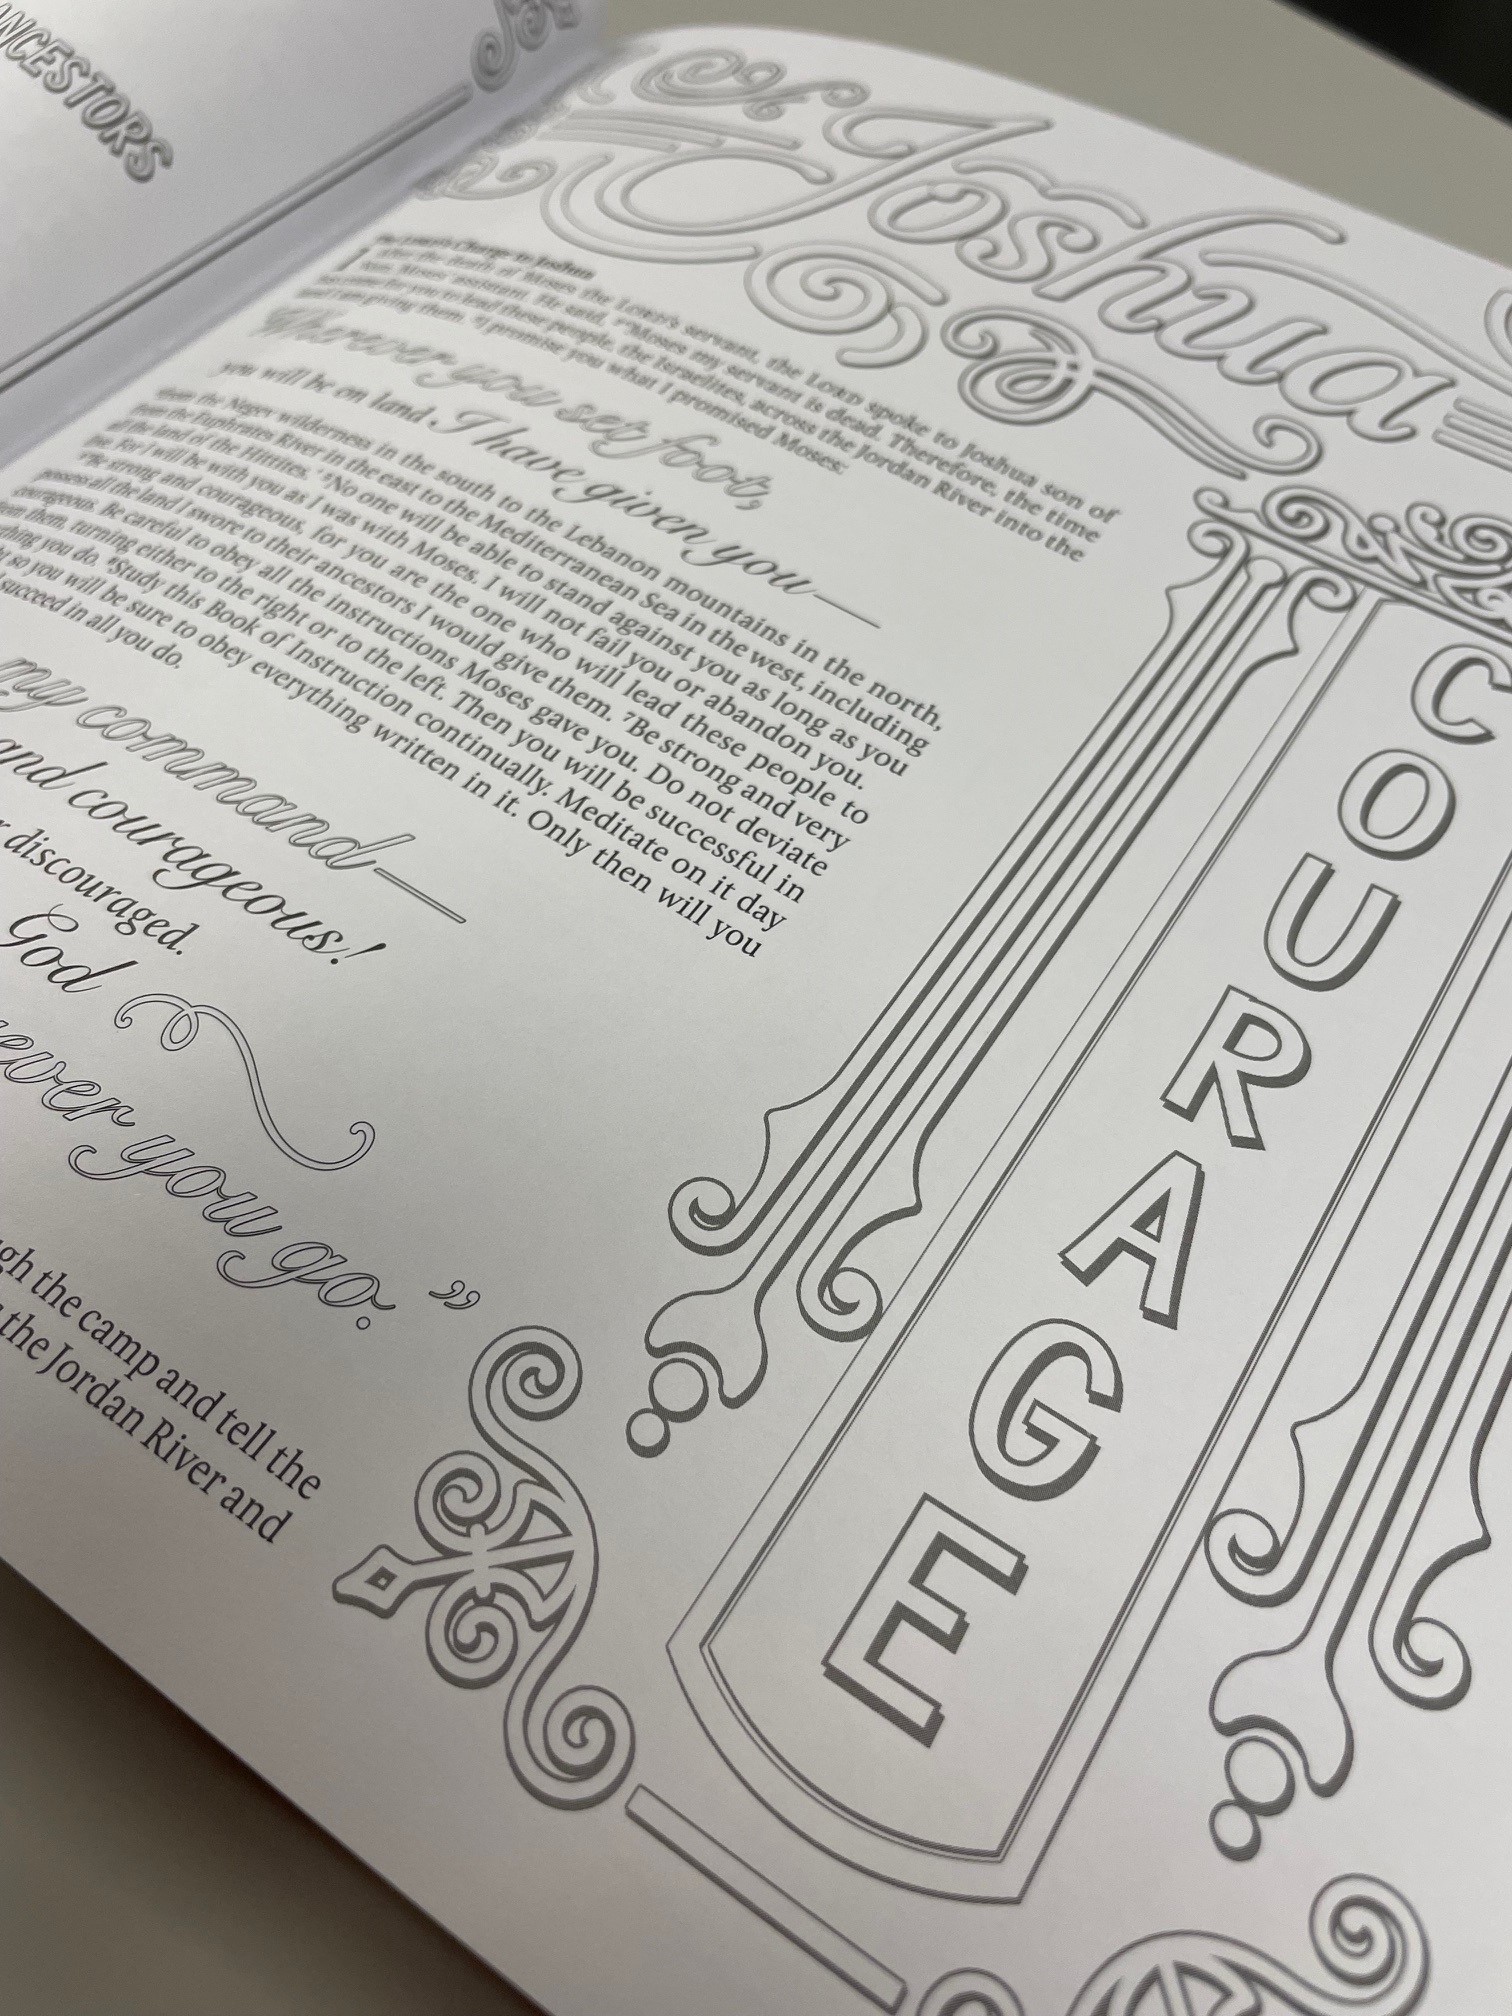 ANCESTORS
Joshua
The LORD's Charge to Joshua
After the death of Moses the LORD's servant, the LORD spoke to Joshua son of
Nun, Moses' assistant. He said, ²"Moses my servant is dead. Therefore, the time
has come for you to lead these people, the Israelites, across the Jordan River into the
land I am giving them. ³I promise you what I promised Moses:
Wherever you set foot,
you will be on land I have given you—
from the Negev wilderness in the south to the Lebanon mountains in the north,
from the Euphrates River in the east to the Mediterranean Sea in the west, including
all the land of the Hittites. ⁵No one will be able to stand against you as long as you
live. For I will be with you as I was with Moses. I will not fail you or abandon you.
⁶Be strong and courageous, for you are the one who will lead these people to
possess all the land I swore to their ancestors I would give them. ⁷Be strong and very
courageous. Be careful to obey all the instructions Moses gave you. Do not deviate
from them, turning either to the right or to the left. Then you will be successful in
everything you do. ⁸Study this Book of Instruction continually. Meditate on it day
so you will be sure to obey everything written in it. Only then will you
succeed in all you do.
my command—
and courageous!
discouraged.
God
ever you go.”
the camp and tell the
the Jordan River and
COURAGE